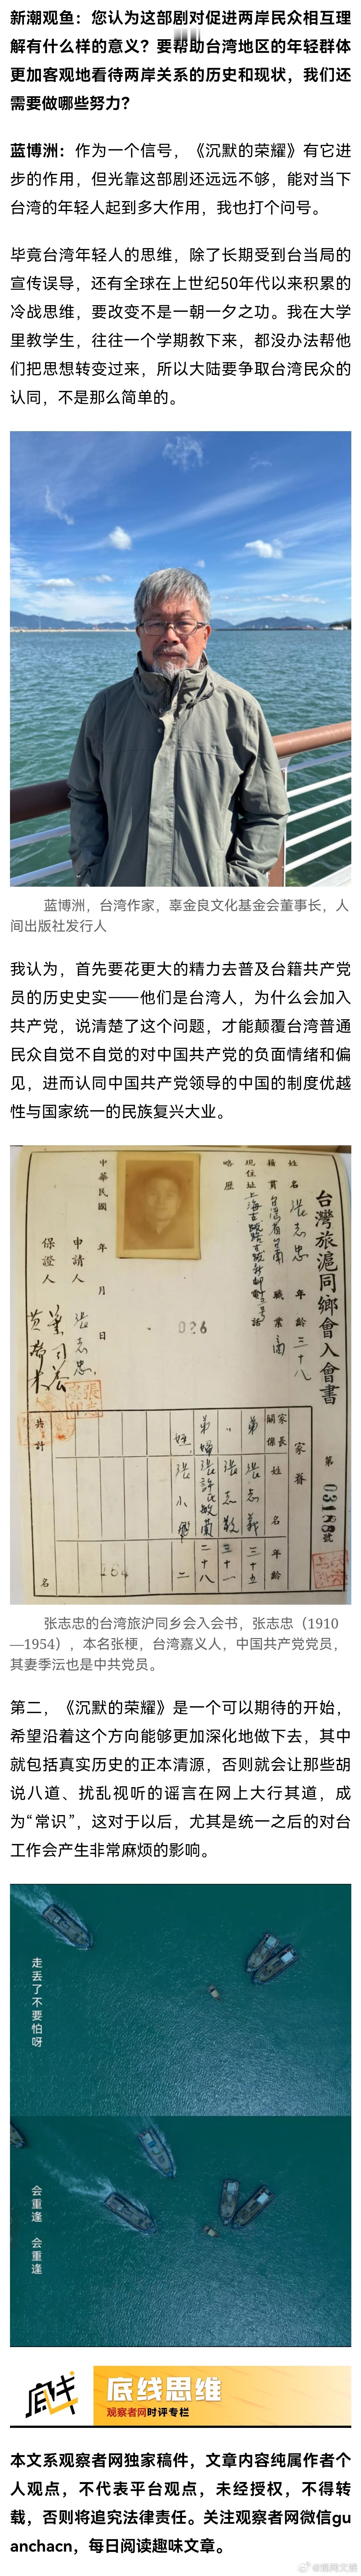 新潮观鱼：您认为这部剧对促进两岸民众相互理
解有什么样的意义？要帮助台湾地区的年轻群体
更加客观地看待两岸关系的历史和现状，我们还
需要做哪些努力？
蓝博洲：作为一个信号，《沉默的荣耀》有它进
步的作用，但光靠这部剧还远远不够，能对当下
台湾的年轻人起到多大作用，我也打个问号。
毕竟台湾年轻人的思维，除了长期受到台当局的
宣传误导，还有全球在上世纪50年代以来积累的
冷战思维，要改变不是一朝一夕之功。我在大学
里教学生，往往一个学期教下来，都没办法帮他
们把思想转变过来，所以大陆要争取台湾民众的
认同，不是那么简单的。
蓝博洲，台湾作家，辜金良文化基金会董事长，人
间出版社发行人
我认为，首先要花更大的精力去普及台籍共产党
员的历史史实——他们是台湾人，为什么会加入
共产党，说清楚了这个问题，才能颠覆台湾普通
民众自觉不自觉的对中国共产党的负面情绪和偏
见，进而认同中国共产党领导的中国的制度优越
性与国家统一的民族复兴大业。
台灣旅滬同鄉會入會書
第 03188 號
姓名 張志忠 年齡 三十八
籍貫 台灣省台南 職業 商
現住址
略歷
026
中華民國 年 月 日
申請人 張志忠
保證人
家長關係 姓名 年齡
家屬
弟 張志義 三十五
弟 張志敬 三十一
弟婦 張許氏敏蘭 二十八
姪 張小 二
共計 名
284
张志忠的台湾旅沪同乡会入会书，张志忠（1910
—1954），本名张梗，台湾嘉义人，中国共产党党员，
其妻季沄也是中共党员。
第二，《沉默的荣耀》是一个可以期待的开始，
希望沿着这个方向能够更加深化地做下去，其中
就包括真实历史的正本清源，否则就会让那些胡
说八道、扰乱视听的谣言在网上大行其道，成
为“常识”，这对于以后，尤其是统一之后的对台
工作会产生非常麻烦的影响。
走丢了不要怕呀
会重逢 会重逢
底线
底线思维
观察者网时评专栏
本文系观察者网独家稿件，文章内容纯属作者个
人观点，不代表平台观点，未经授权，不得转
载，否则将追究法律责任。关注观察者网微信gu
anchacn，每日阅读趣味文章。